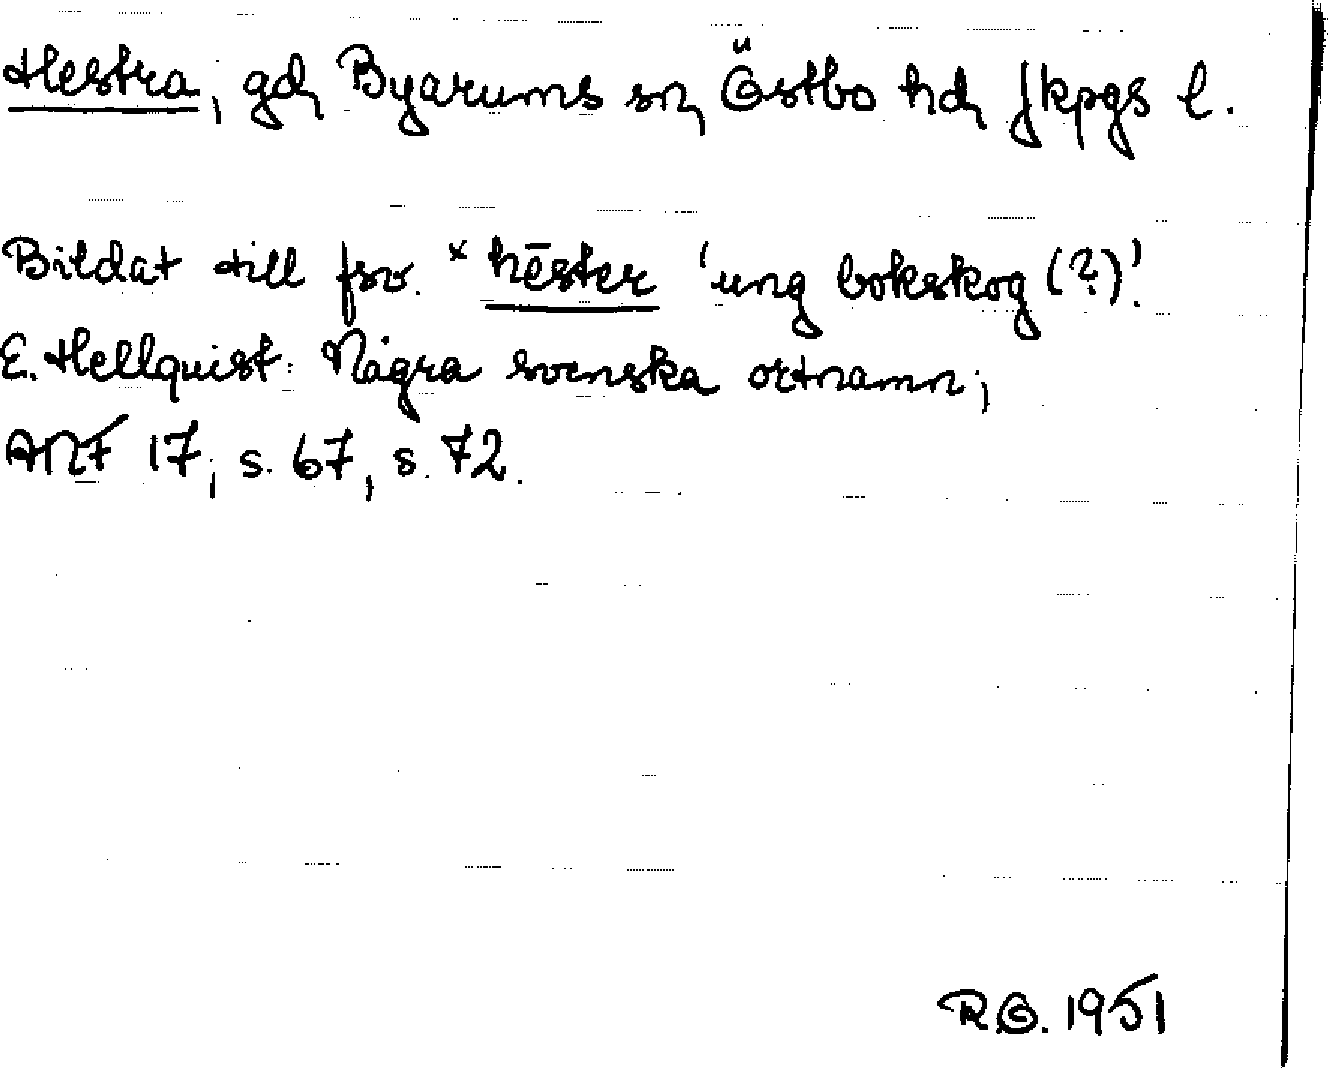 Hestra, gd, Byarums sn, Östbo hd, Jkpgs l.
Bildat till fsv. *hēster 'ung bokskog (?)'.
E. Hellquist: Några svenska ortnamn;
ANF 17, s. 67, s. 72.
RG. 1951